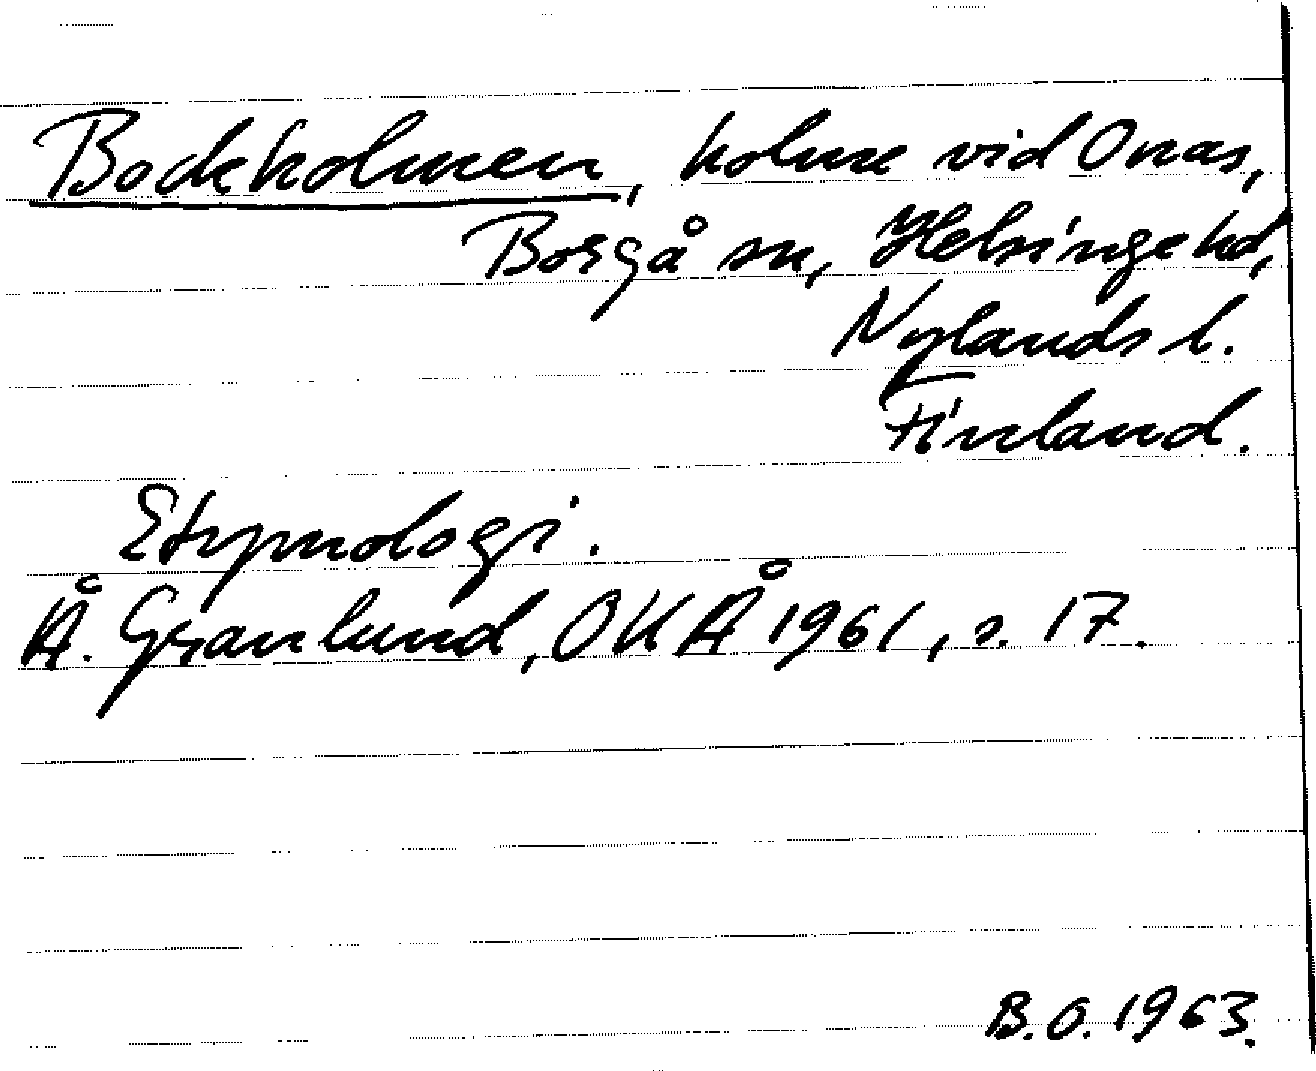 Bockholmen, holme vid Onas,
Borgå sn, Helsinge hd,
Nylands l.
Finland.
Etymologi.
Å. Granlund, OKÅ 1961, s. 17.
B.O. 1963.